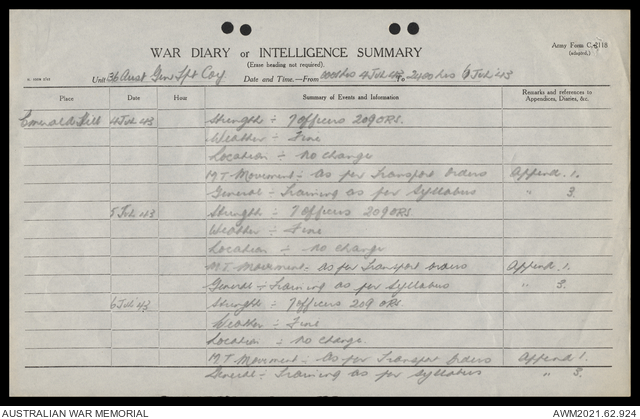 WAR DIARY or INTELLIGENCE SUMMARY
Army Form C. 2118
(adapted.)
(Erase heading not required).
Unit 36 Aust Gen Tpt Coy Date and Time.—From 0001hrs 4 Jul 43 To 2400 hrs 6 Jul 43
Place Date Hour Summary of Events and Information Remarks and references to
Appendices, Diaries, &c.
Emerald Hill 4 Jul 43 Strength ÷ 7 Officers 209 ORS.
Weather ÷ Fine
Location ÷ No change
M.T. Movement ÷ As per Transport Orders Append. 1.
General ÷ Training as per Syllabus " 3.
5 Jul 43 Strength ÷ 7 Officers 209 ORS
Weather ÷ Fine
Location ÷ No change
M.T. Movement ÷ As per Transport orders Append. 1.
General ÷ Training as per Syllabus " 3.
6 Jul 43 Strength ÷ 7 Officers 209 ORS.
Weather ÷ Fine
Location ÷ No change.
M.T. Movement ÷ As per Transport Orders Append 1.
General ÷ Training as per Syllabus " 3.
AUSTRALIAN WAR MEMORIAL AWM2021.62.924